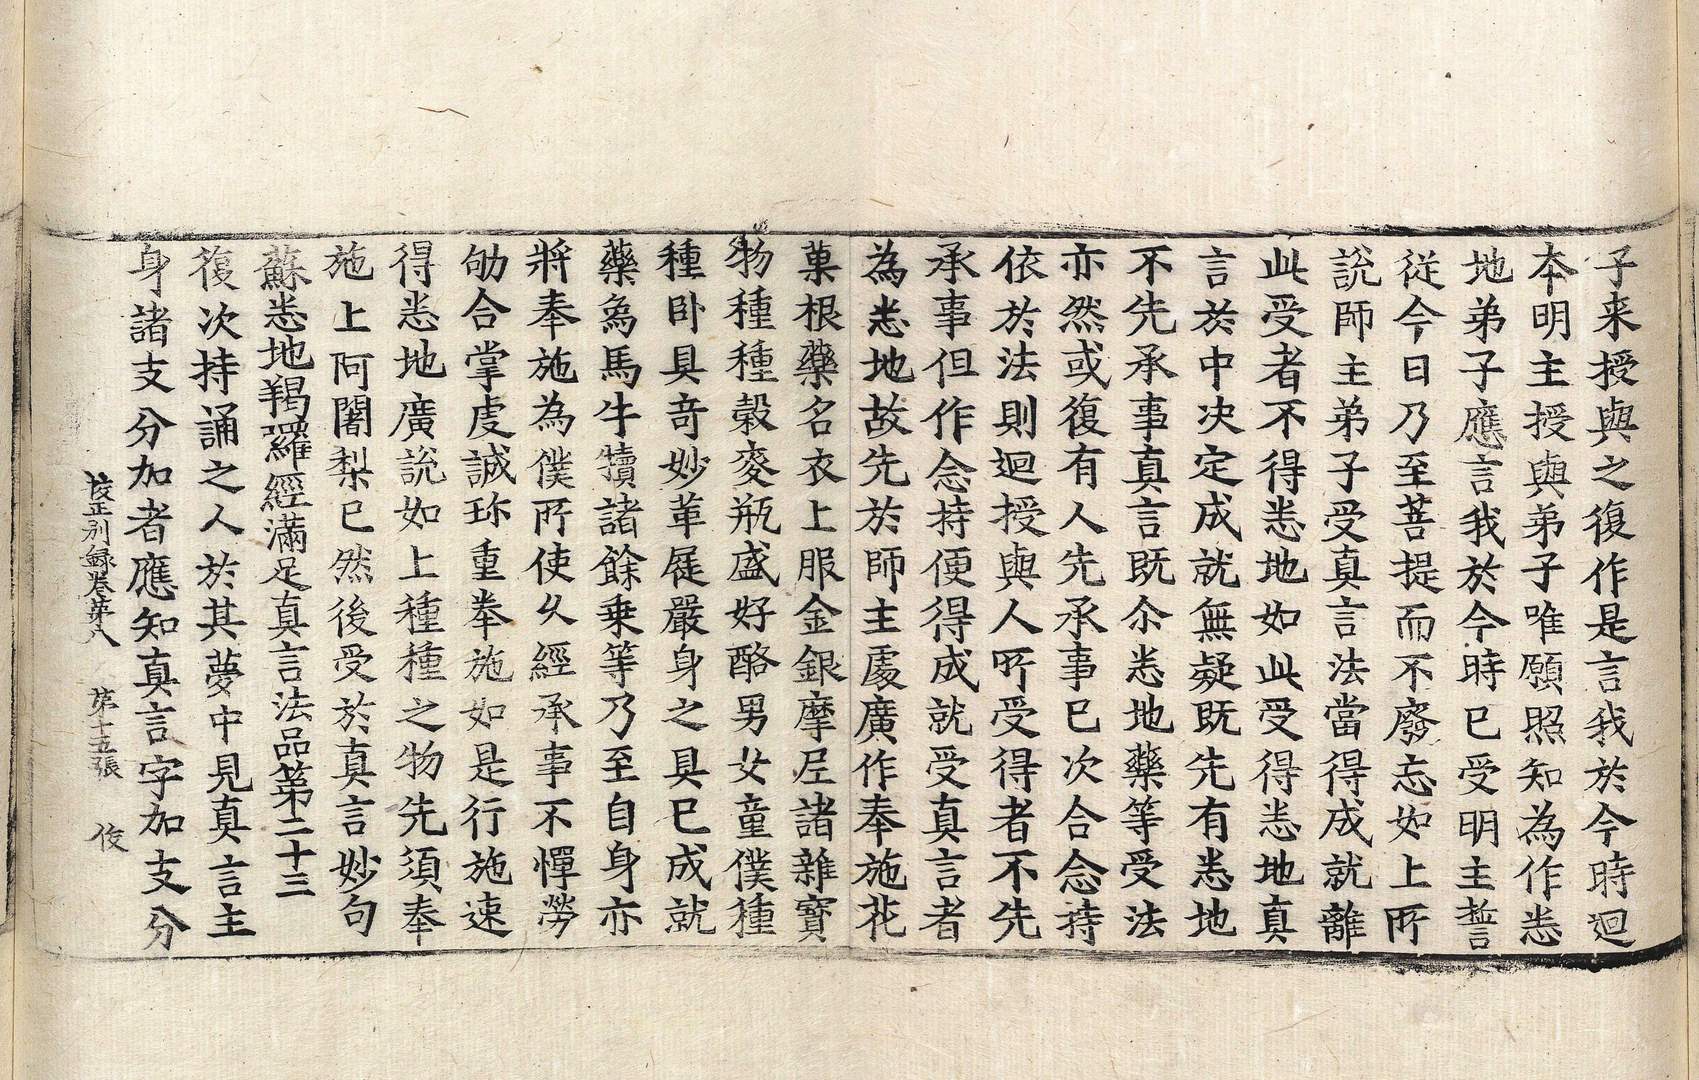 子来授與之復作是言我於今時迴
本明主授與弟子唯願照知為作悉
地弟子應言我於今時已受明主誓
従今日乃至菩提而不廢忘如上所
說師主弟子受真言法當得成就離
此受者不得悉地如此受得悉地真
言於中决定成就無疑既先有悉地
不先承事真言既尒悉地藥等受法
亦然或復有人先承事已次合念持
依於法則迴授與人所受得者不先
承事但作念持便得成就受真言者
為悉地故先於師主處廣作奉施花
菓根藥名衣上服金銀摩尼諸雜寶
物種種穀麥瓶盛好酪男女童僕種
種卧具奇妙革屣嚴身之具已成就
藥為馬牛犢諸餘乗等乃至自身亦
將奉施為僕所使久經承事不憚勞
劬合掌虔誠珎重奉施如是行施速
得悉地廣說如上種種之物先須奉
施上阿闍梨已然後受於真言妙句
蘇悉地羯羅經滿足真言法品第二十三
復次持誦之人於其夢中見真言主
身諸支分加者應知真言字加支分
校正別録卷第八 第十五張 俊